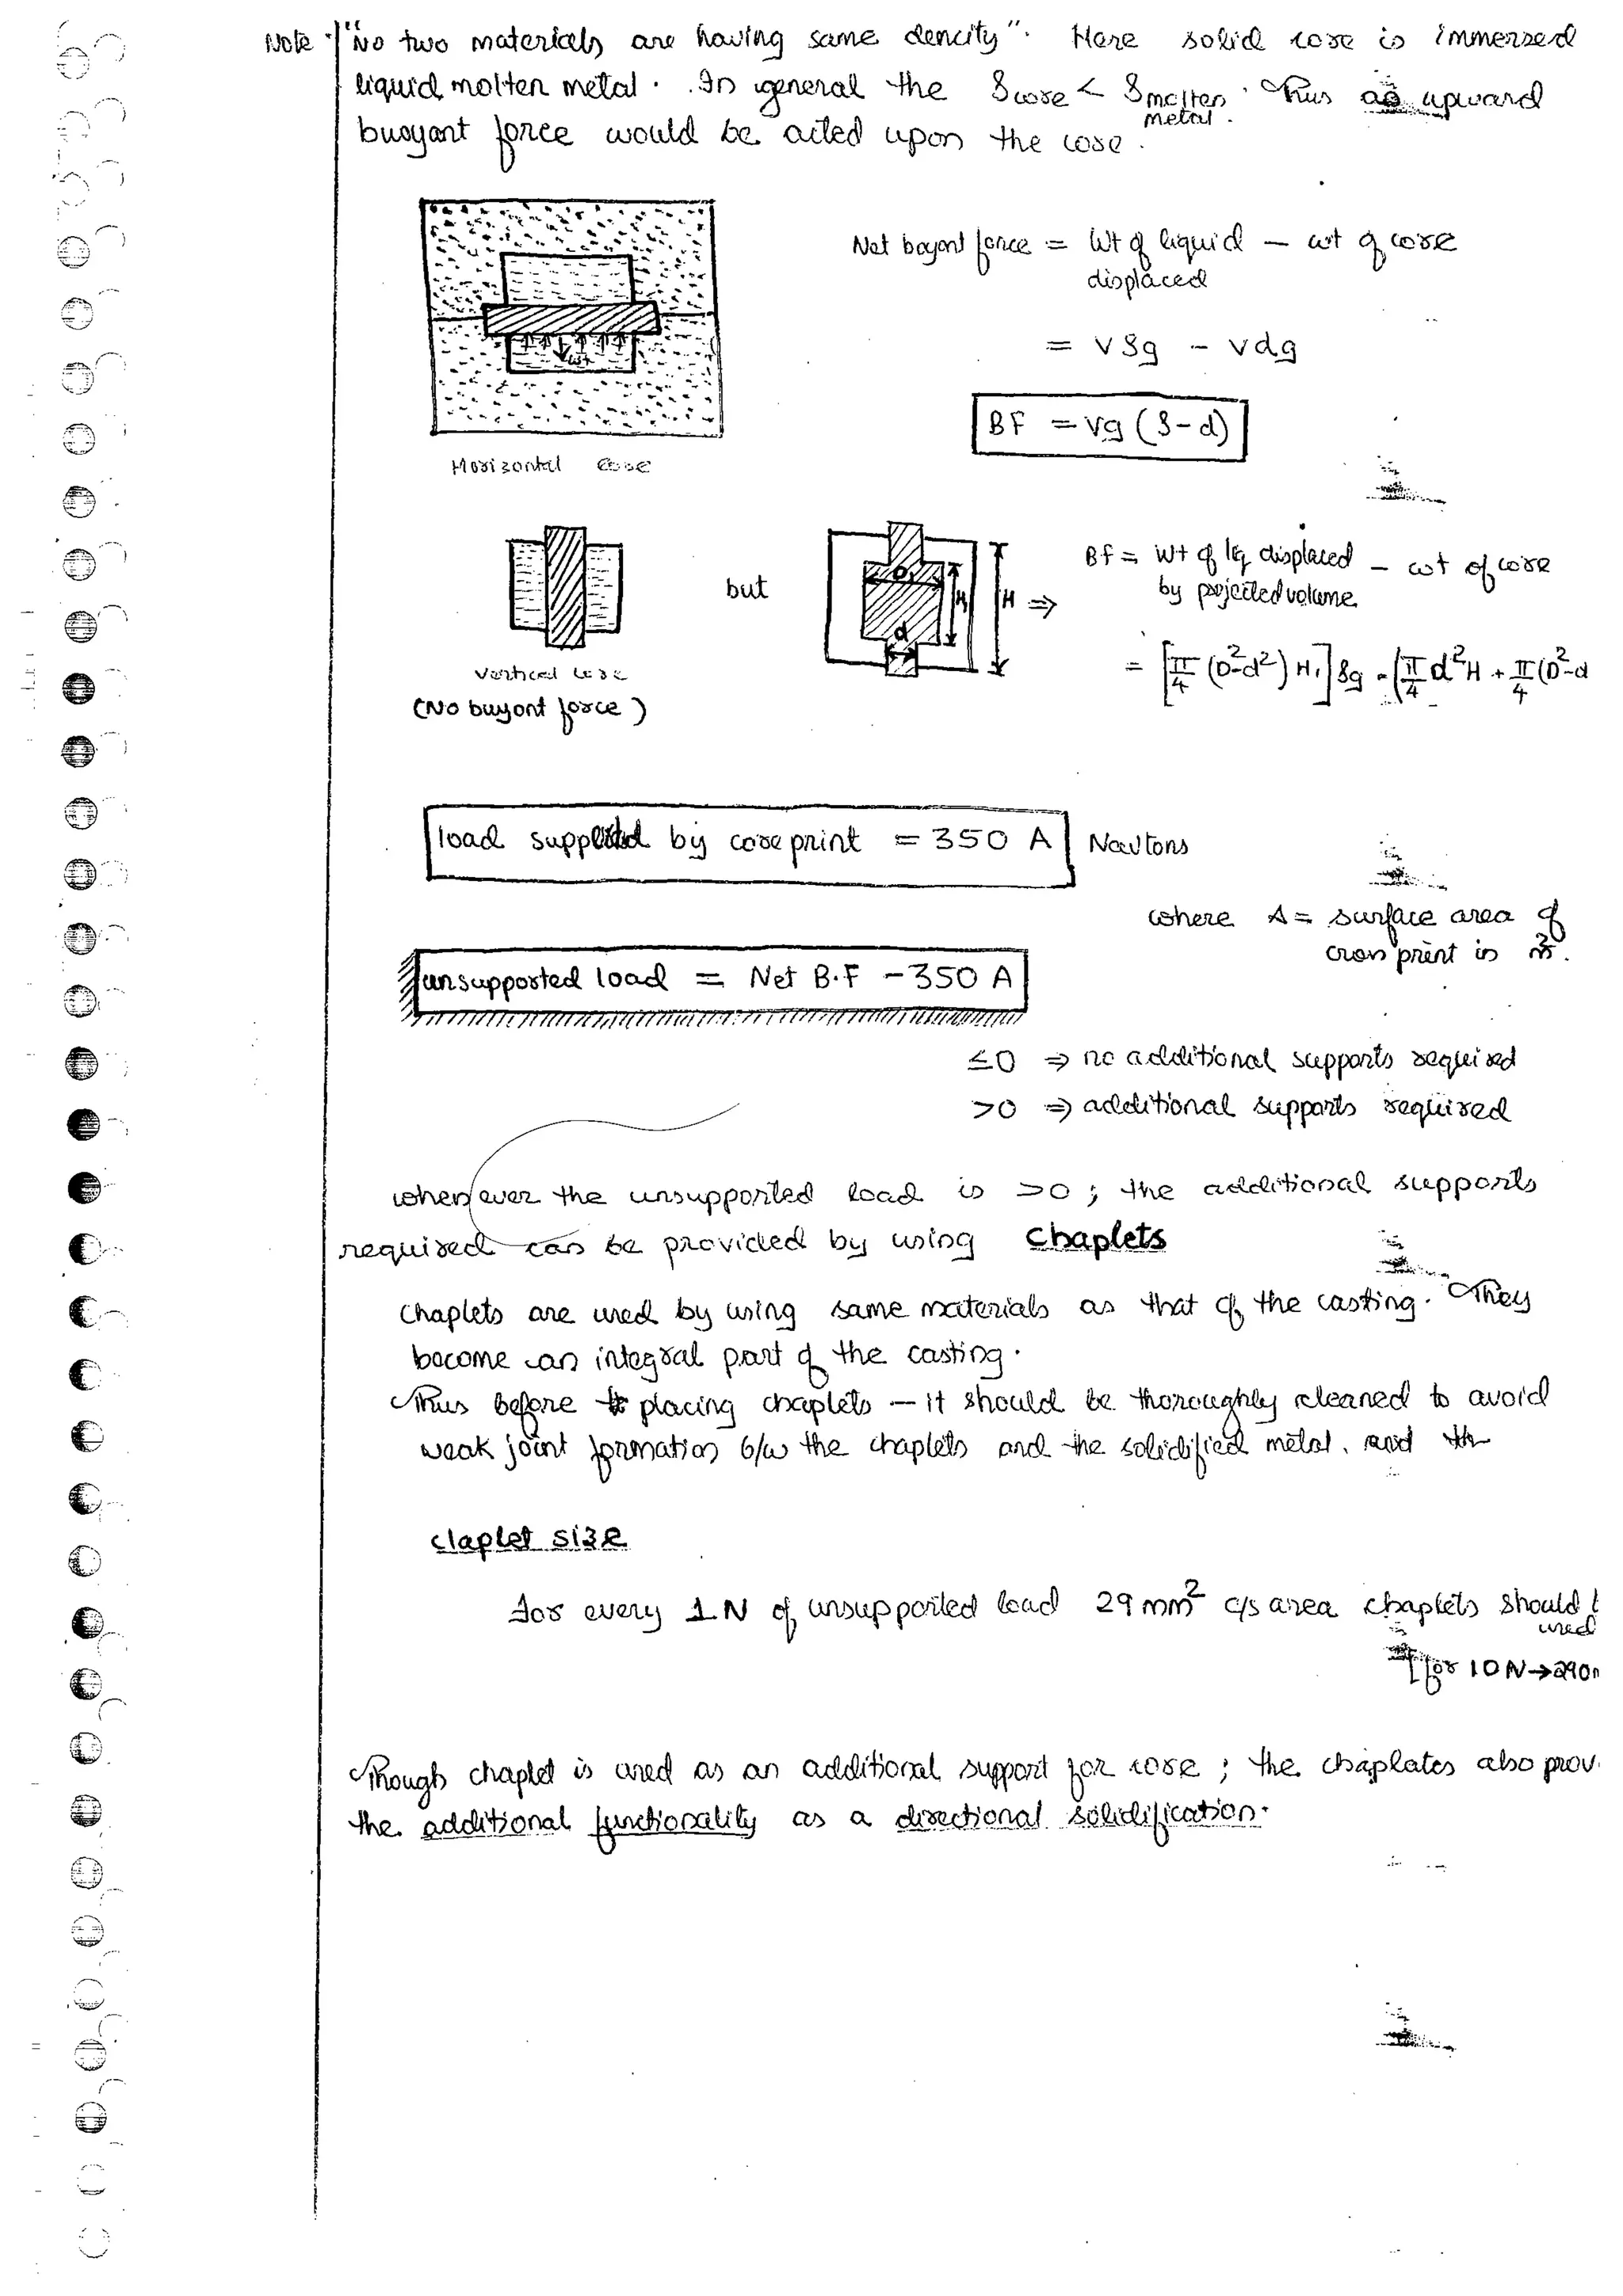 Note : "No two materials are having same dencity". Here solid core is immersed
liquid molten metal. In general the ρcore < ρmolten metal. Thus an upward
buoyant force would be acted upon the core.
Net boyont force = Wt of liquid displaced – wt of core
= vρg – vdg
BF = vg (ρ-d)
Horizontal core
but
D
H₁
H
d
⇒
Bf = wt of liq displaced by projected volume – wt of core
= [π/4 (D²-d²) H₁] ρg - (π/4 d²H + π/4 (D²-d
vertical core
(No buyont force)
load supported by core print = 350 A Newtons
where A = surface area of
core print in m².
unsupported load = Net B.F – 350 A
≤0 ⇒ no additional supports required
>0 ⇒ additional supports required
whenever the unsupported load is >0 ; the additional supports
required can be provided by using Chaplets
Chaplets are used by using same materials as that of the casting. They
become an integral part of the casting.
Thus before placing chaplets – it should be thoroughly cleaned to avoid
weak joint formation b/w the chaplets and the solidified metal. and
claplet size
For every 1 N of unsupported load 29 mm² c/s area chaplets should
used
[for 10 N → 290
Though chaplet is used as an additional support for core ; the chaplates also prov
the additional functionality as a directional solidification.